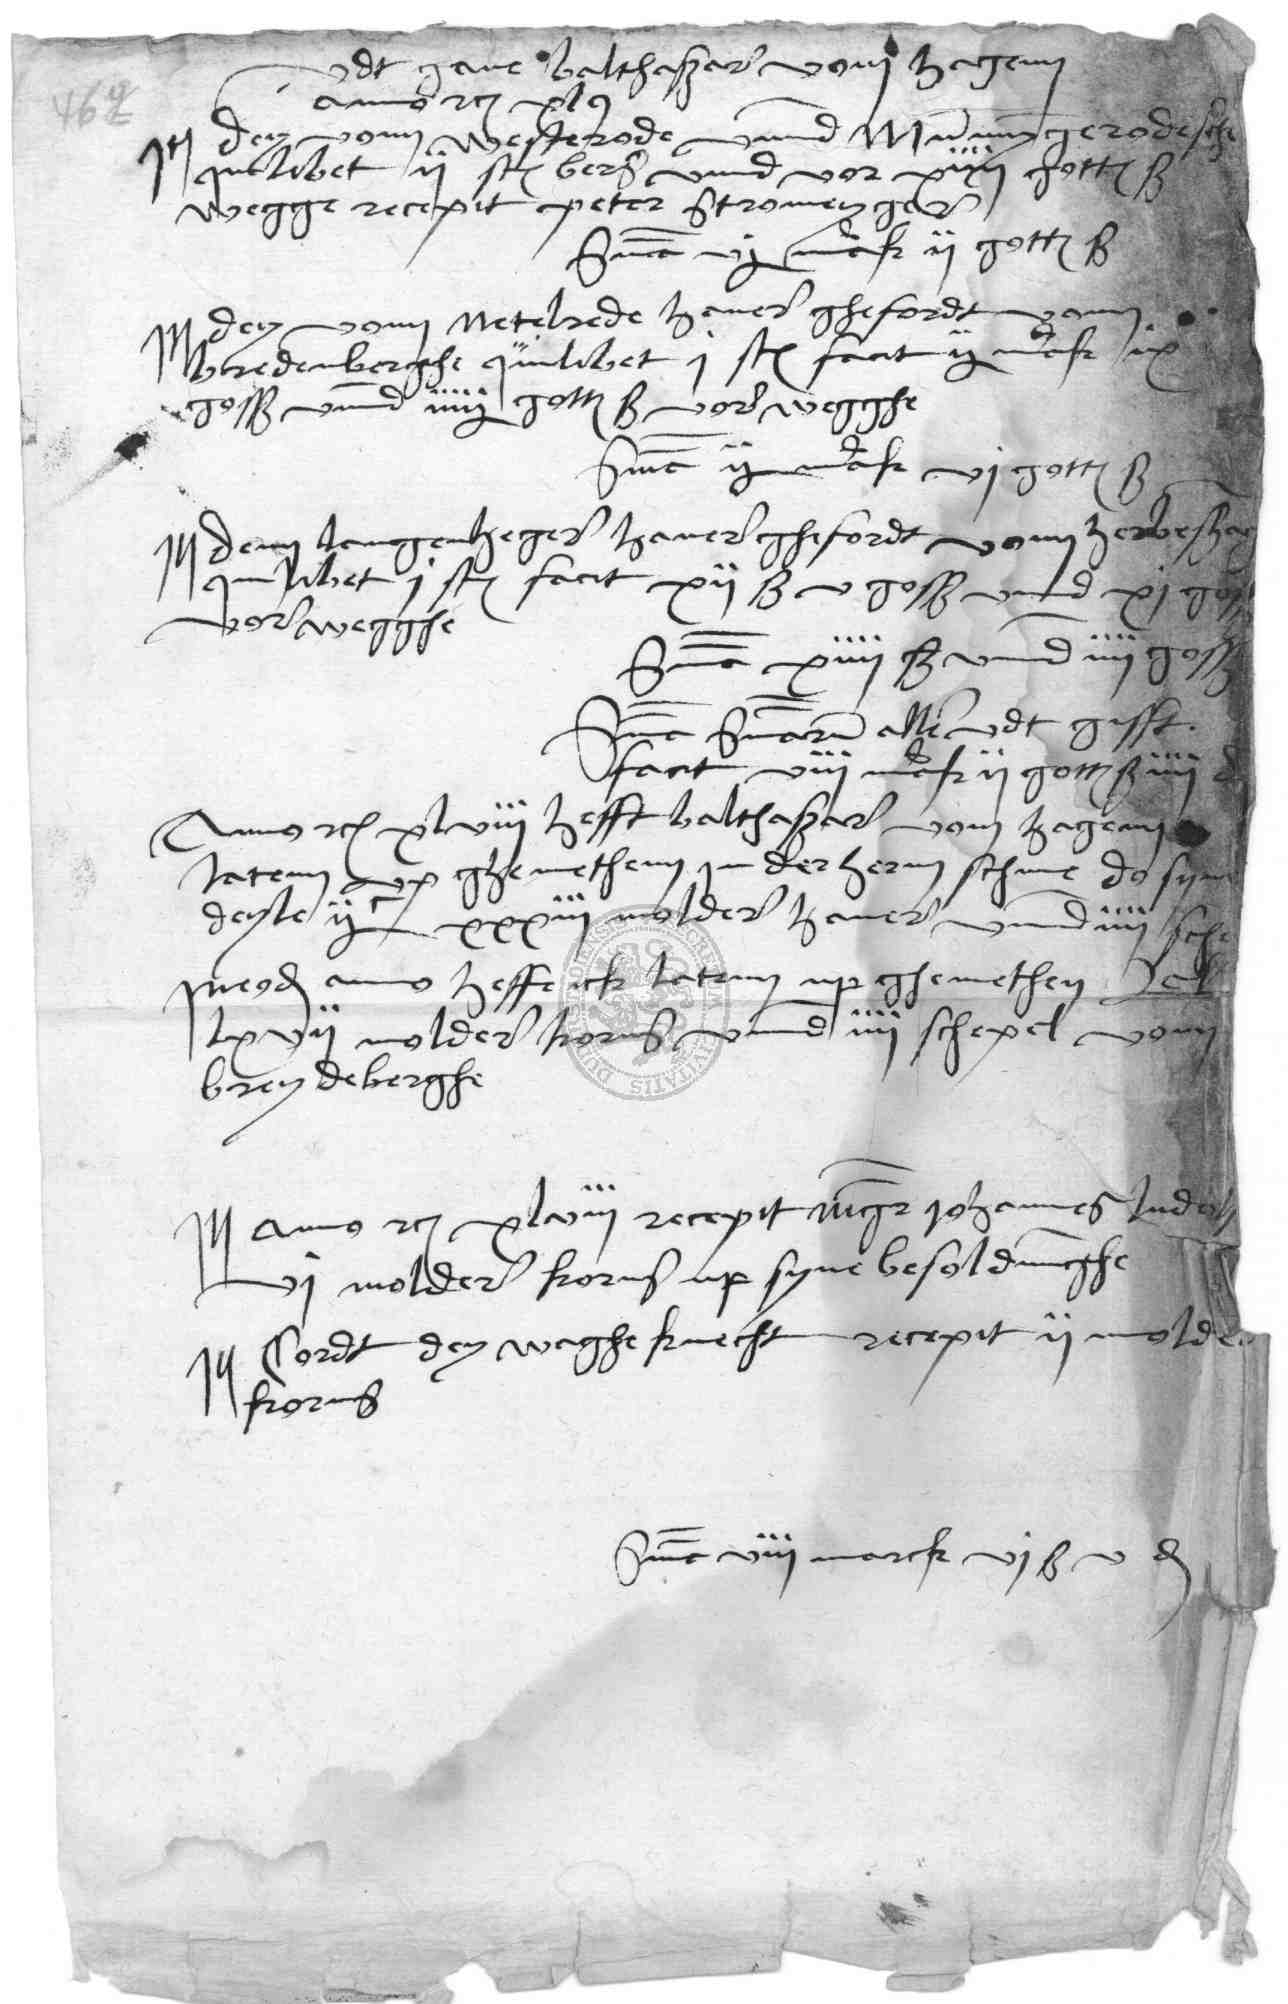 462
vdt gave balthaßar vom hagem
anno rc xl9
It dey vom westerode vnnd Mu̅nni̅gerodesche
qu̅libet ij st bers vnnd vor xiiij gott ß
wegge recepit peter Stromeyger
Su̅ma vj mark ij gott ß
It dey vom Netelrede haver ghefordt vam
bredenberghe quilibet j st facit ij mark ix
goßß vnnd iiij gott ß vor wegghe
Su̅ma ij mark vj gott ß
It dem langenheger haver ghefordt vom herbeßhag
quilibet j st facit xij ß v goßß vnnd xj goß
vor wegghe
Su̅ma xiiij ß vnnd iiij goßß
Su̅ma Su̅marum aller vdt gifft
facit viij mark ij gott ß iiij d
Anno rc xlviij hefft balthaßar vom hagem
latem up ghemethem in der hern schune do syne
deyle ijc xxxiij molder haver vnnd iiij sche
In eod anno heffe ick latem up ghemethen
lxvij molder korns vnnd iiij schepel vom
breydeberghe
It Anno rc xlviij recepit Mgr Johannes ludolf
vj molder korns up syne besoldunghe
It Cordt dey waghe knecht recepit ij molder
korns
Su̅ma viij marck vj ß v d
SECRETUM CIVITATIS